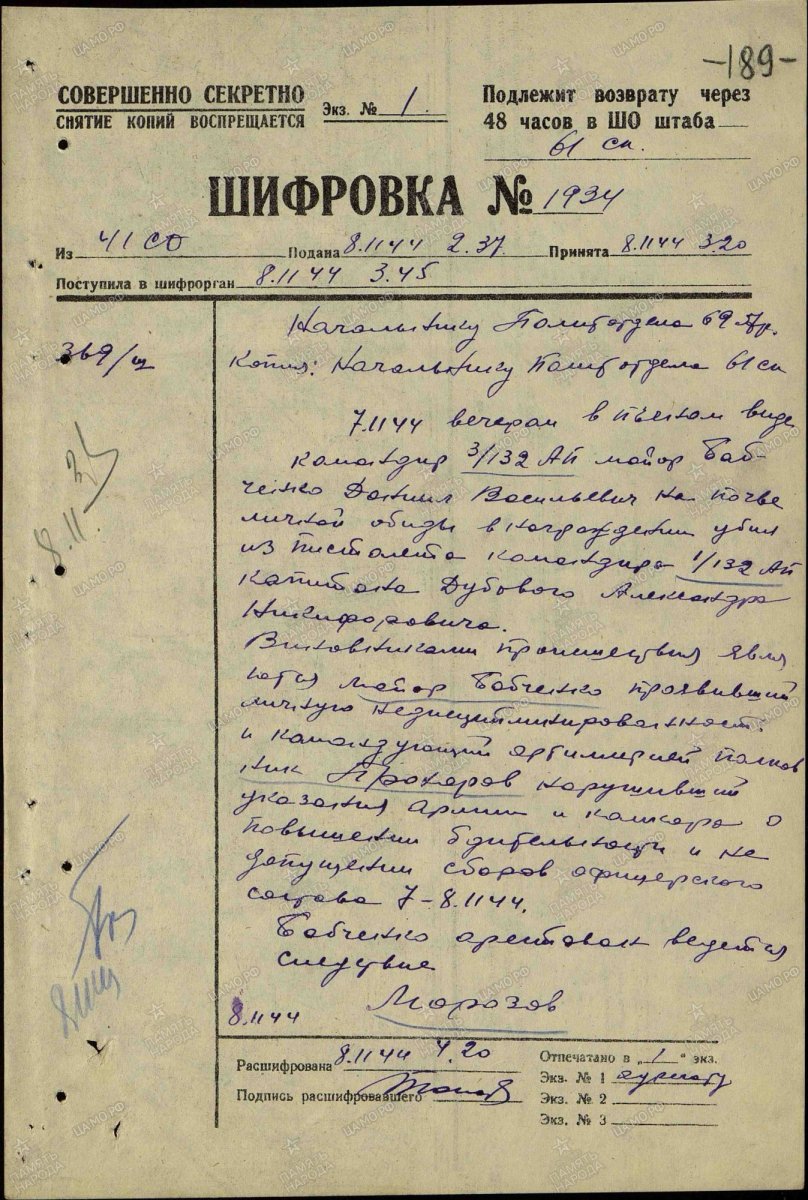 -189-
СОВЕРШЕННО СЕКРЕТНО
СНЯТИЕ КОПИЙ ВОСПРЕЩАЕТСЯ
Экз. № 1.
Подлежит возврату через
48 часов в ШО штаба
61 ск.
ШИФРОВКА № 1934
Из 41 СД Подана 8.11.44 2.37 Принята 8.11.44 3.20
Поступила в шифрорган 8.11.44 3.45
369/ш
Начальнику Политотдела 69 Ар.
Копия: Начальнику Политотдела 61 ск
7.11.44 вечером в пьяном виде
командир 3/132 АП майор Баб-
ченко Даниил Васильевич на почве
личной обиды в награждении убил
из пистолета командира 1/132 АП
капитана Дубового Александра
Никифоровича.
Виновниками происшествия явля
ются майор Бабченко проявивший
личную недисциплинированность
и командующий артиллерией полков
ник Прохоров нарушивший
указания армии и комкора о
повышении бдительности и не
допущении сборов офицерского
состава 7-8.11.44.
Бабченко арестован ведется
следствие
Морозов
8.11.44
8.11.
Расшифрована 8.11.44 4.20
Подпись расшифровавшего
Отпечатано в „1" экз.
Экз. № 1 адресату
Экз. № 2
Экз. № 3